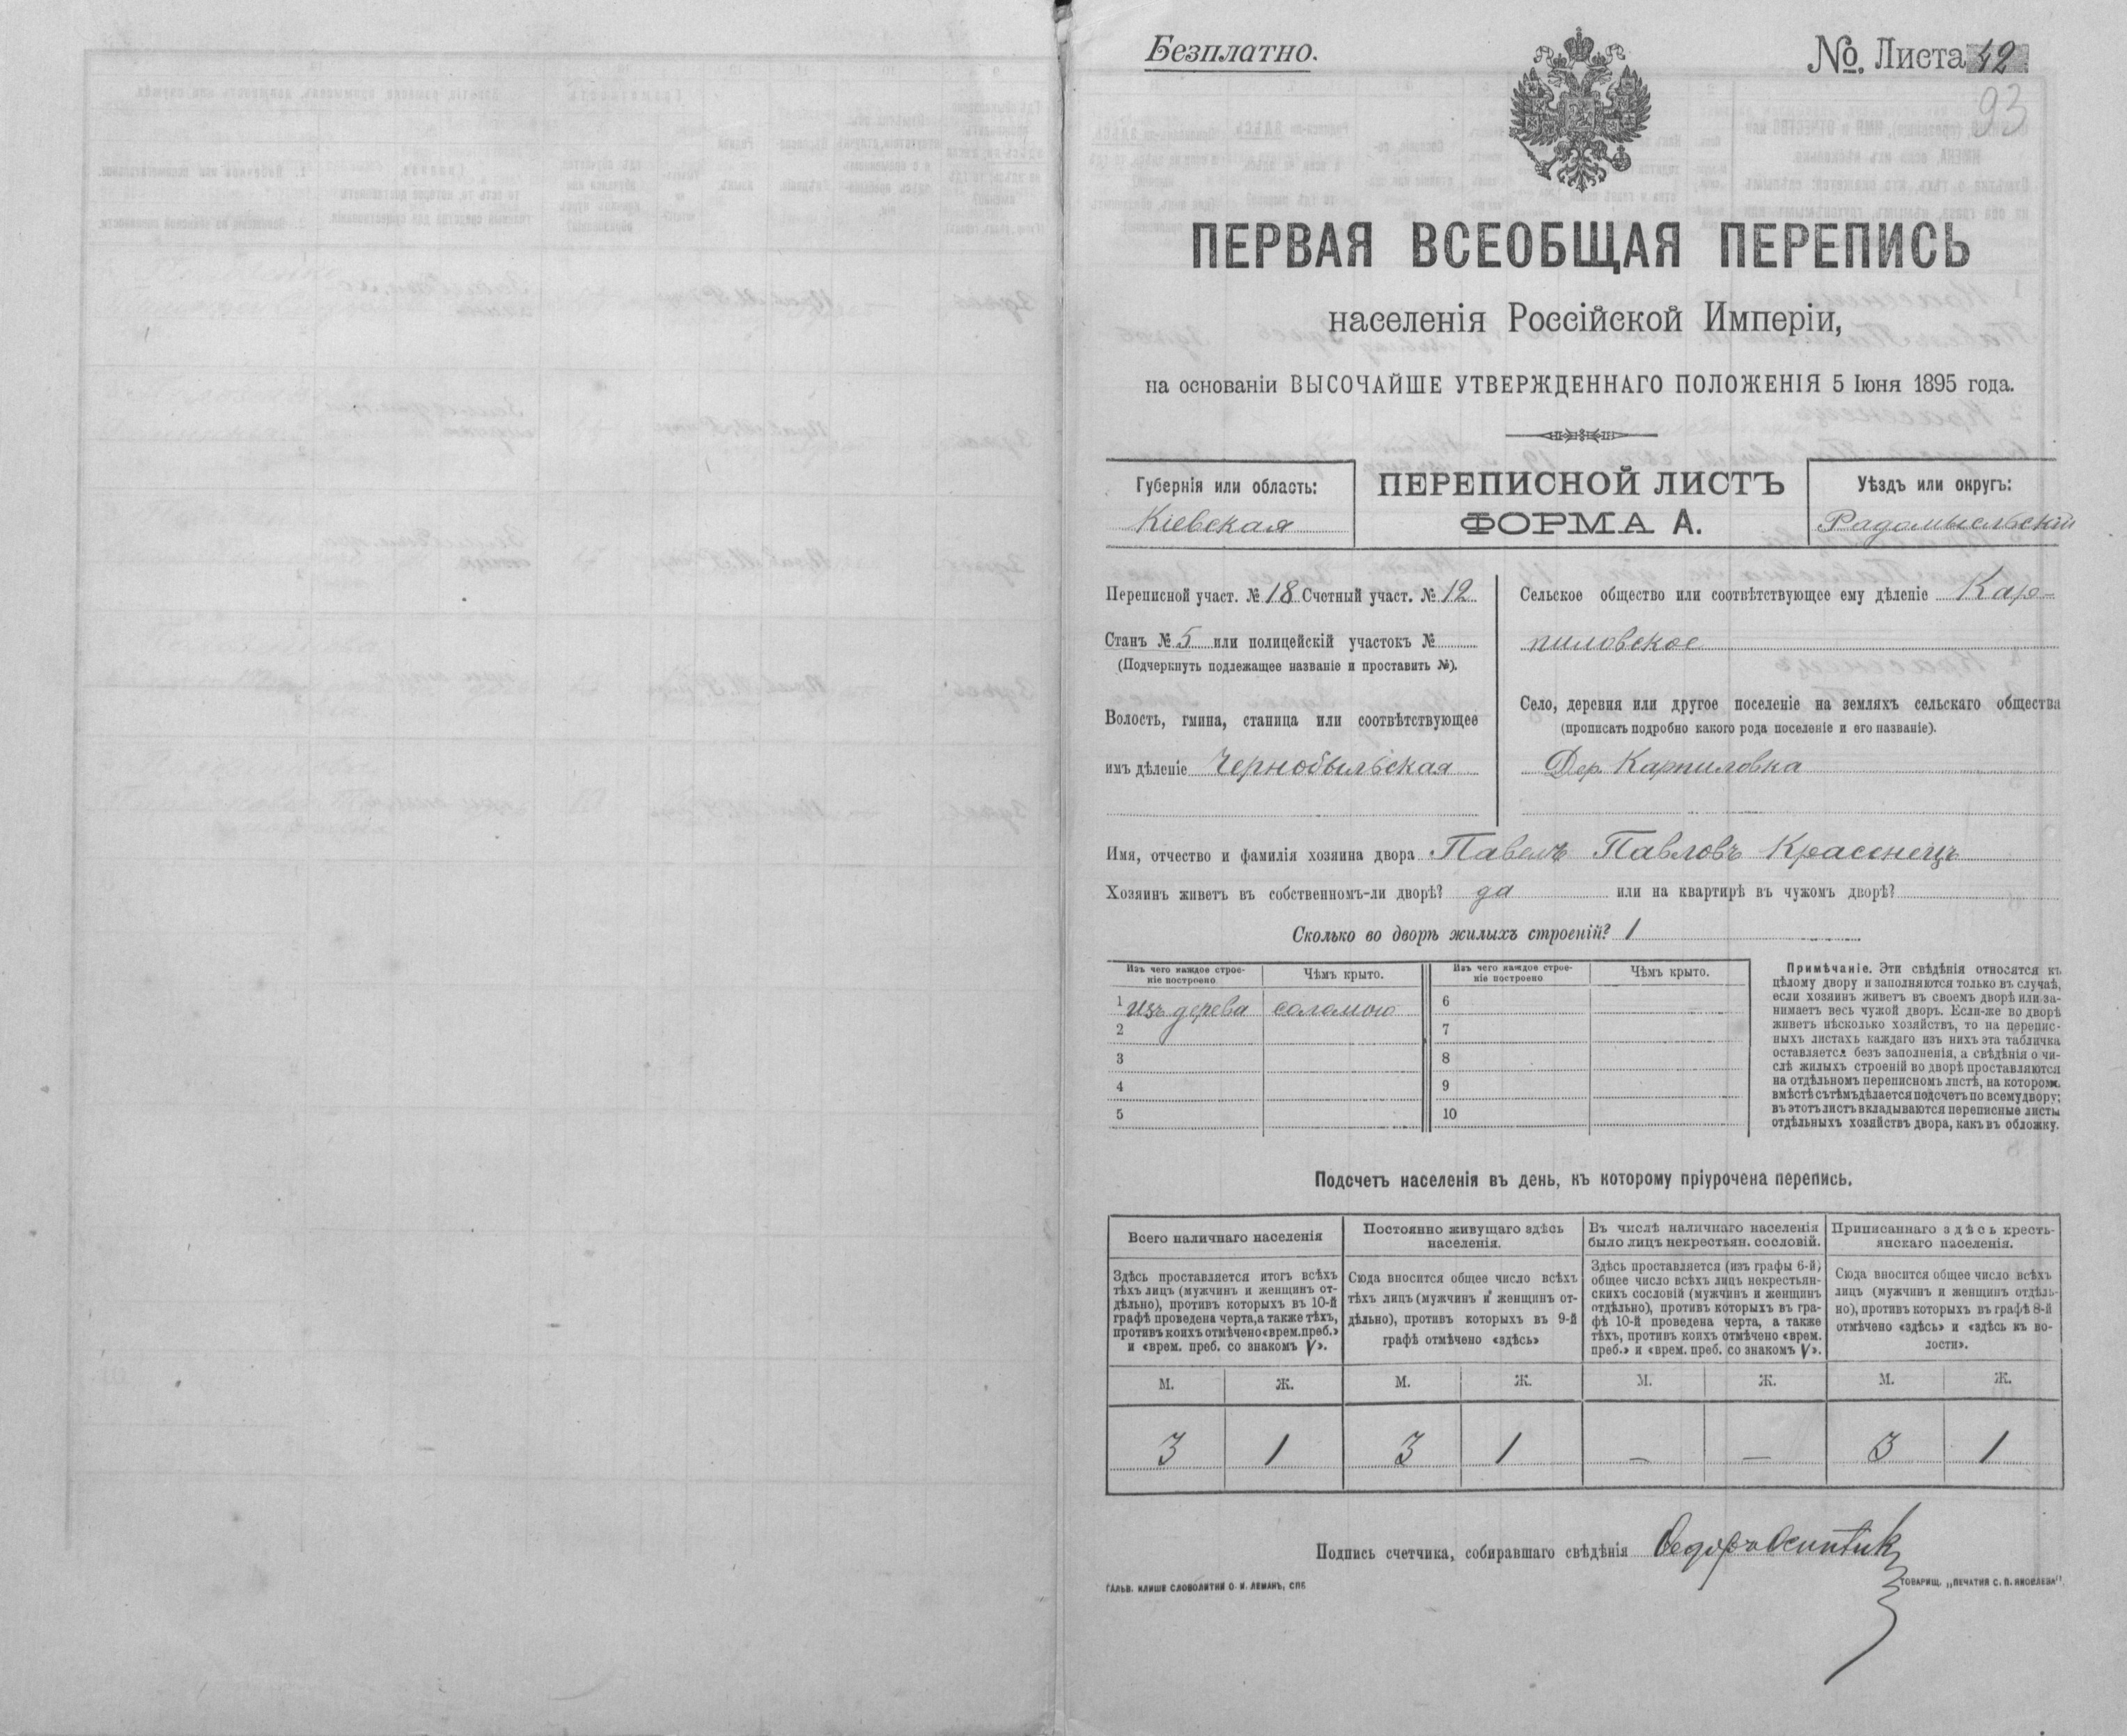 Безплатно.
№. Листа 42
93
ПЕРВАЯ ВСЕОБЩАЯ ПЕРЕПИСЬ
населенія Россійской Имперіи,
на основаніи ВЫСОЧАЙШЕ УТВЕРЖДЕННАГО ПОЛОЖЕНІЯ 5 Іюня 1895 года.
Губернія или область:
Кіевская
ПЕРЕПИСНОЙ ЛИСТЪ
ФОРМА А.
Уѣздъ или округъ:
Радомысльскій
Переписной участ. № 18 Счетный участ. № 12
Станъ № 5 или полицейскій участокъ №
(Подчеркнуть подлежащее названіе и проставить №).
Волость, гмина, станица или соотвѣтствующее
имъ дѣленіе Чернобыльская
Сельское общество или соотвѣтствующее ему дѣленіе Кар-
пиловское
Село, деревня или другое поселеніе на земляхъ сельскаго общества
(прописать подробно какого рода поселеніе и его названіе).
Дер. Карпиловка
Имя, отчество и фамилія хозяина двора Павелъ Павловъ Красенецъ
Хозяинъ живетъ въ собственномъ-ли дворѣ? да или на квартирѣ въ чужомъ дворѣ?
Сколько во дворѣ жилыхъ строеній? 1
Изъ чего каждое строе-
ніе построено
Чѣмъ крыто.
Изъ чего каждое строе-
ніе построено
Чѣмъ крыто.
1 изъ дерева соломою 6
2 7
3 8
4 9
5 10
Примѣчаніе. Эти свѣдѣнія относятся къ
цѣлому двору и заполняются только въ случаѣ,
если хозяинъ живетъ въ своемъ дворѣ или за-
нимаетъ весь чужой дворъ. Если-же во дворѣ
живетъ нѣсколько хозяйствъ, то на перепис-
ныхъ листахъ каждаго изъ нихъ эта табличка
оставляется безъ заполненія, а свѣдѣнія о чи-
слѣ жилыхъ строеній во дворѣ проставляются
на отдѣльномъ переписномъ листѣ, на которомъ
вмѣстѣ съ тѣмъ дѣлается подсчетъ по всему двору;
въ этотъ листъ вкладываются переписные листы
отдѣльныхъ хозяйствъ двора, какъ въ обложку.
Подсчетъ населенія въ день, къ которому пріурочена перепись.
Всего наличнаго населенія
Здѣсь проставляется итогъ всѣхъ
тѣхъ лицъ (мужчинъ и женщинъ от-
дѣльно), противъ которыхъ въ 10-й
графѣ проведена черта, а также тѣхъ,
противъ коихъ отмѣчено «врем. преб.»
и «врем. преб. со знакомъ V».
Постоянно живущаго здѣсь
населенія.
Сюда вносится общее число всѣхъ
тѣхъ лицъ (мужчинъ и женщинъ от-
дѣльно), противъ которыхъ въ 9-й
графѣ отмѣчено «здѣсь»
Въ числѣ наличнаго населенія
было лицъ некрестьян. сословій.
Здѣсь проставляется (изъ графы 6-й)
общее число всѣхъ лицъ некрестьян-
скихъ сословій (мужчинъ и женщинъ
отдѣльно), противъ которыхъ въ гра-
фѣ 10-й проведена черта, а также
тѣхъ, противъ коихъ отмѣчено «врем.
преб.» и «врем. преб. со знакомъ V».
Приписаннаго здѣсь кресть-
янскаго населенія.
Сюда вносится общее число всѣхъ
лицъ (мужчинъ и женщинъ отдѣль-
но), противъ которыхъ въ графѣ 8-й
отмѣчено «здѣсь» и «здѣсь къ во-
лости».
М. Ж. М. Ж. М. Ж. М. Ж.
3 1 3 1 — — 3 1
Подпись счетчика, собиравшаго свѣдѣнія
ГАЛЬВ. КЛИШЕ СЛОВОЛИТНИ О. И. ЛЕМАНЪ, СПБ
ТОВАРИЩ. „ПЕЧАТНЯ С. П. ЯКОВЛЕВА".